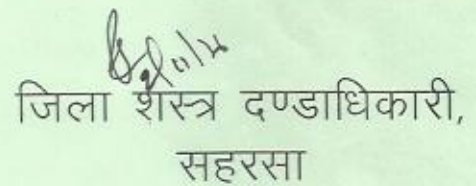 जिला शस्त्र दण्डाधिकारी,
सहरसा